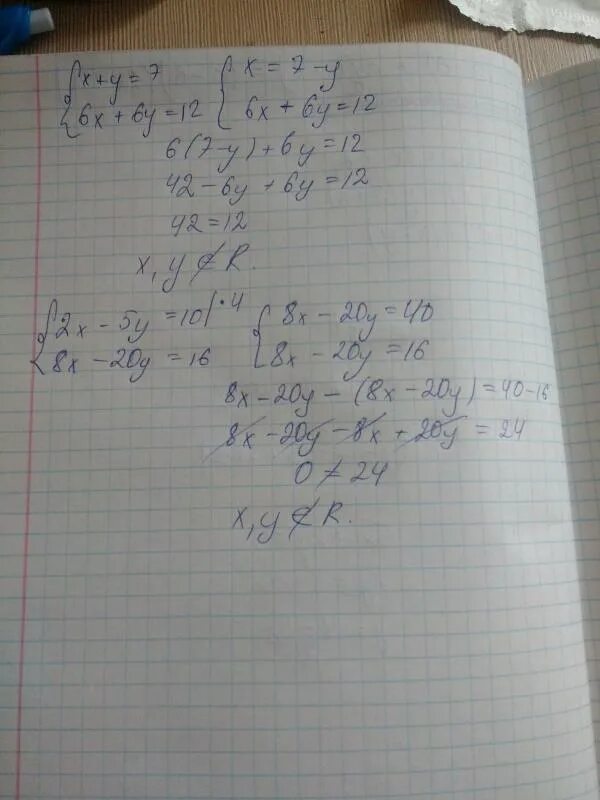 {x+y=7 {x = 7-y
{6x+6y=12 {6x+6y=12
6(7-y)+6y=12
42-6y+6y=12
42=12
x, y ∉ R.
{2x-5y=10|·4 {8x-20y=40
{8x-20y=16 {8x-20y=16
8x-20y-(8x-20y)=40-16
8x-20y-8x+20y=24
0≠24
x, y ∉ R.